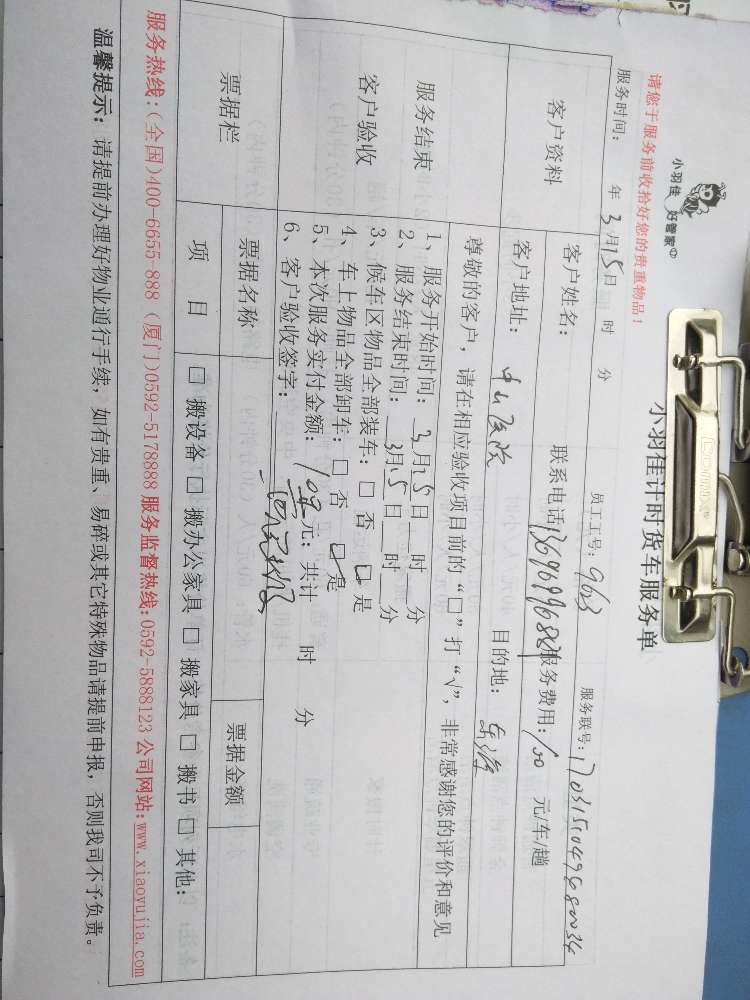 小羽佳 好管家
小羽佳计时货车服务单
请您于服务前收拾好您的贵重物品！
服务时间： 年 3月15日 时 分 员工工号：963 服务联号：
客户资料
客户姓名： 联系电话 服务费用：100 元/车/趟
客户地址：中山医院 目的地：
尊敬的客户，请在相应验收项目前的“□”打“√”，非常感谢您的评价和意见
服务结束
客户验收
1、服务开始时间：3月15日 时 分
2、服务结束时间：3月15日 时 分
3、候车区物品全部装车：□ 否 □ 是
4、车上物品全部卸车：□ 否 □ 是
5、本次服务实付金额：100元；共计 时 分
6、客户验收签字：
票据栏
票据名称 票据金额
项 目 □ 搬设备 □ 搬办公家具 □ 搬家具 □ 搬书 □ 其他：
服务热线：（全国）400-6655-888（厦门）0592-5178888 服务监督热线：0592-5888123 公司网站：www.xiaoyujia.com
温馨提示：请提前办理好物业通行手续，如有贵重、易碎或其它特殊物品请提前申报，否则我司不予负责。